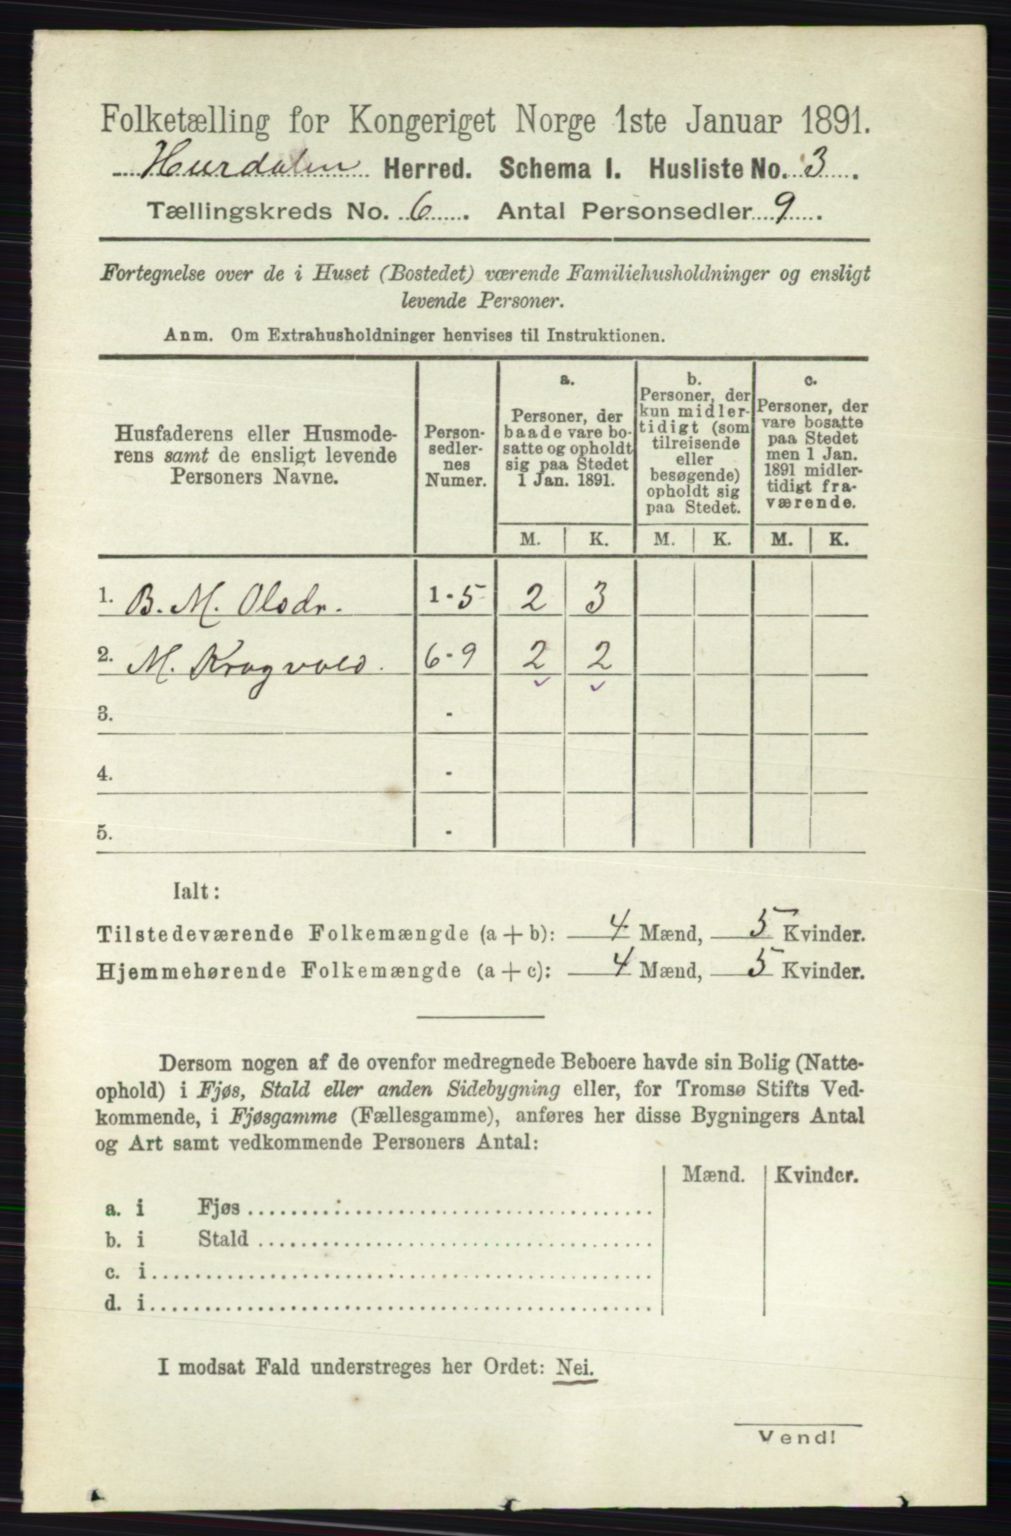 Folketælling for Kongeriget Norge 1ste Januar 1891.
Hurdalen Herred. Schema I. Husliste No. 3.
Tællingskreds No. 6. Antal Personsedler 9.
Fortegnelse over de i Huset (Bostedet) værende Familiehusholdninger og ensligt
levende Personer.
Anm. Om Extrahusholdninger henvises til Instruktionen.
Husfaderens eller Husmode-
rens samt de ensligt levende
Personers Navne.
Person-
sedler-
nes
Numer.
a.
Personer, der
baade vare bo-
satte og opholdt
sig paa Stedet
1 Jan. 1891.
b.
Personer, der
kun midler-
tidigt (som
tilreisende
eller
besøgende)
opholdt sig
paa Stedet.
c.
Personer, der
vare bosatte
paa Stedet
men 1 Jan.
1891 midler-
tidigt fra-
værende.
M. K. M. K. M. K.
1. B. M. Olsdr. 1-5 2 3
2. M. Krogvold. 6-9 2 2
3. -
4. -
5. -
Ialt:
Tilstedeværende Folkemængde (a + b): 4 Mænd, 5 Kvinder.
Hjemmehørende Folkemængde (a + c): 4 Mænd, 5 Kvinder.
Dersom nogen af de ovenfor medregnede Beboere havde sin Bolig (Natte-
ophold) i Fjøs, Stald eller anden Sidebygning eller, for Tromsø Stifts Ved-
kommende, i Fjøsgamme (Fællesgamme), anføres her disse Bygningers Antal
og Art samt vedkommende Personers Antal:
Mænd. Kvinder.
a. i Fjøs
b. i Stald
c. i
d. i
I modsat Fald understreges her Ordet: Nei.
Vend!